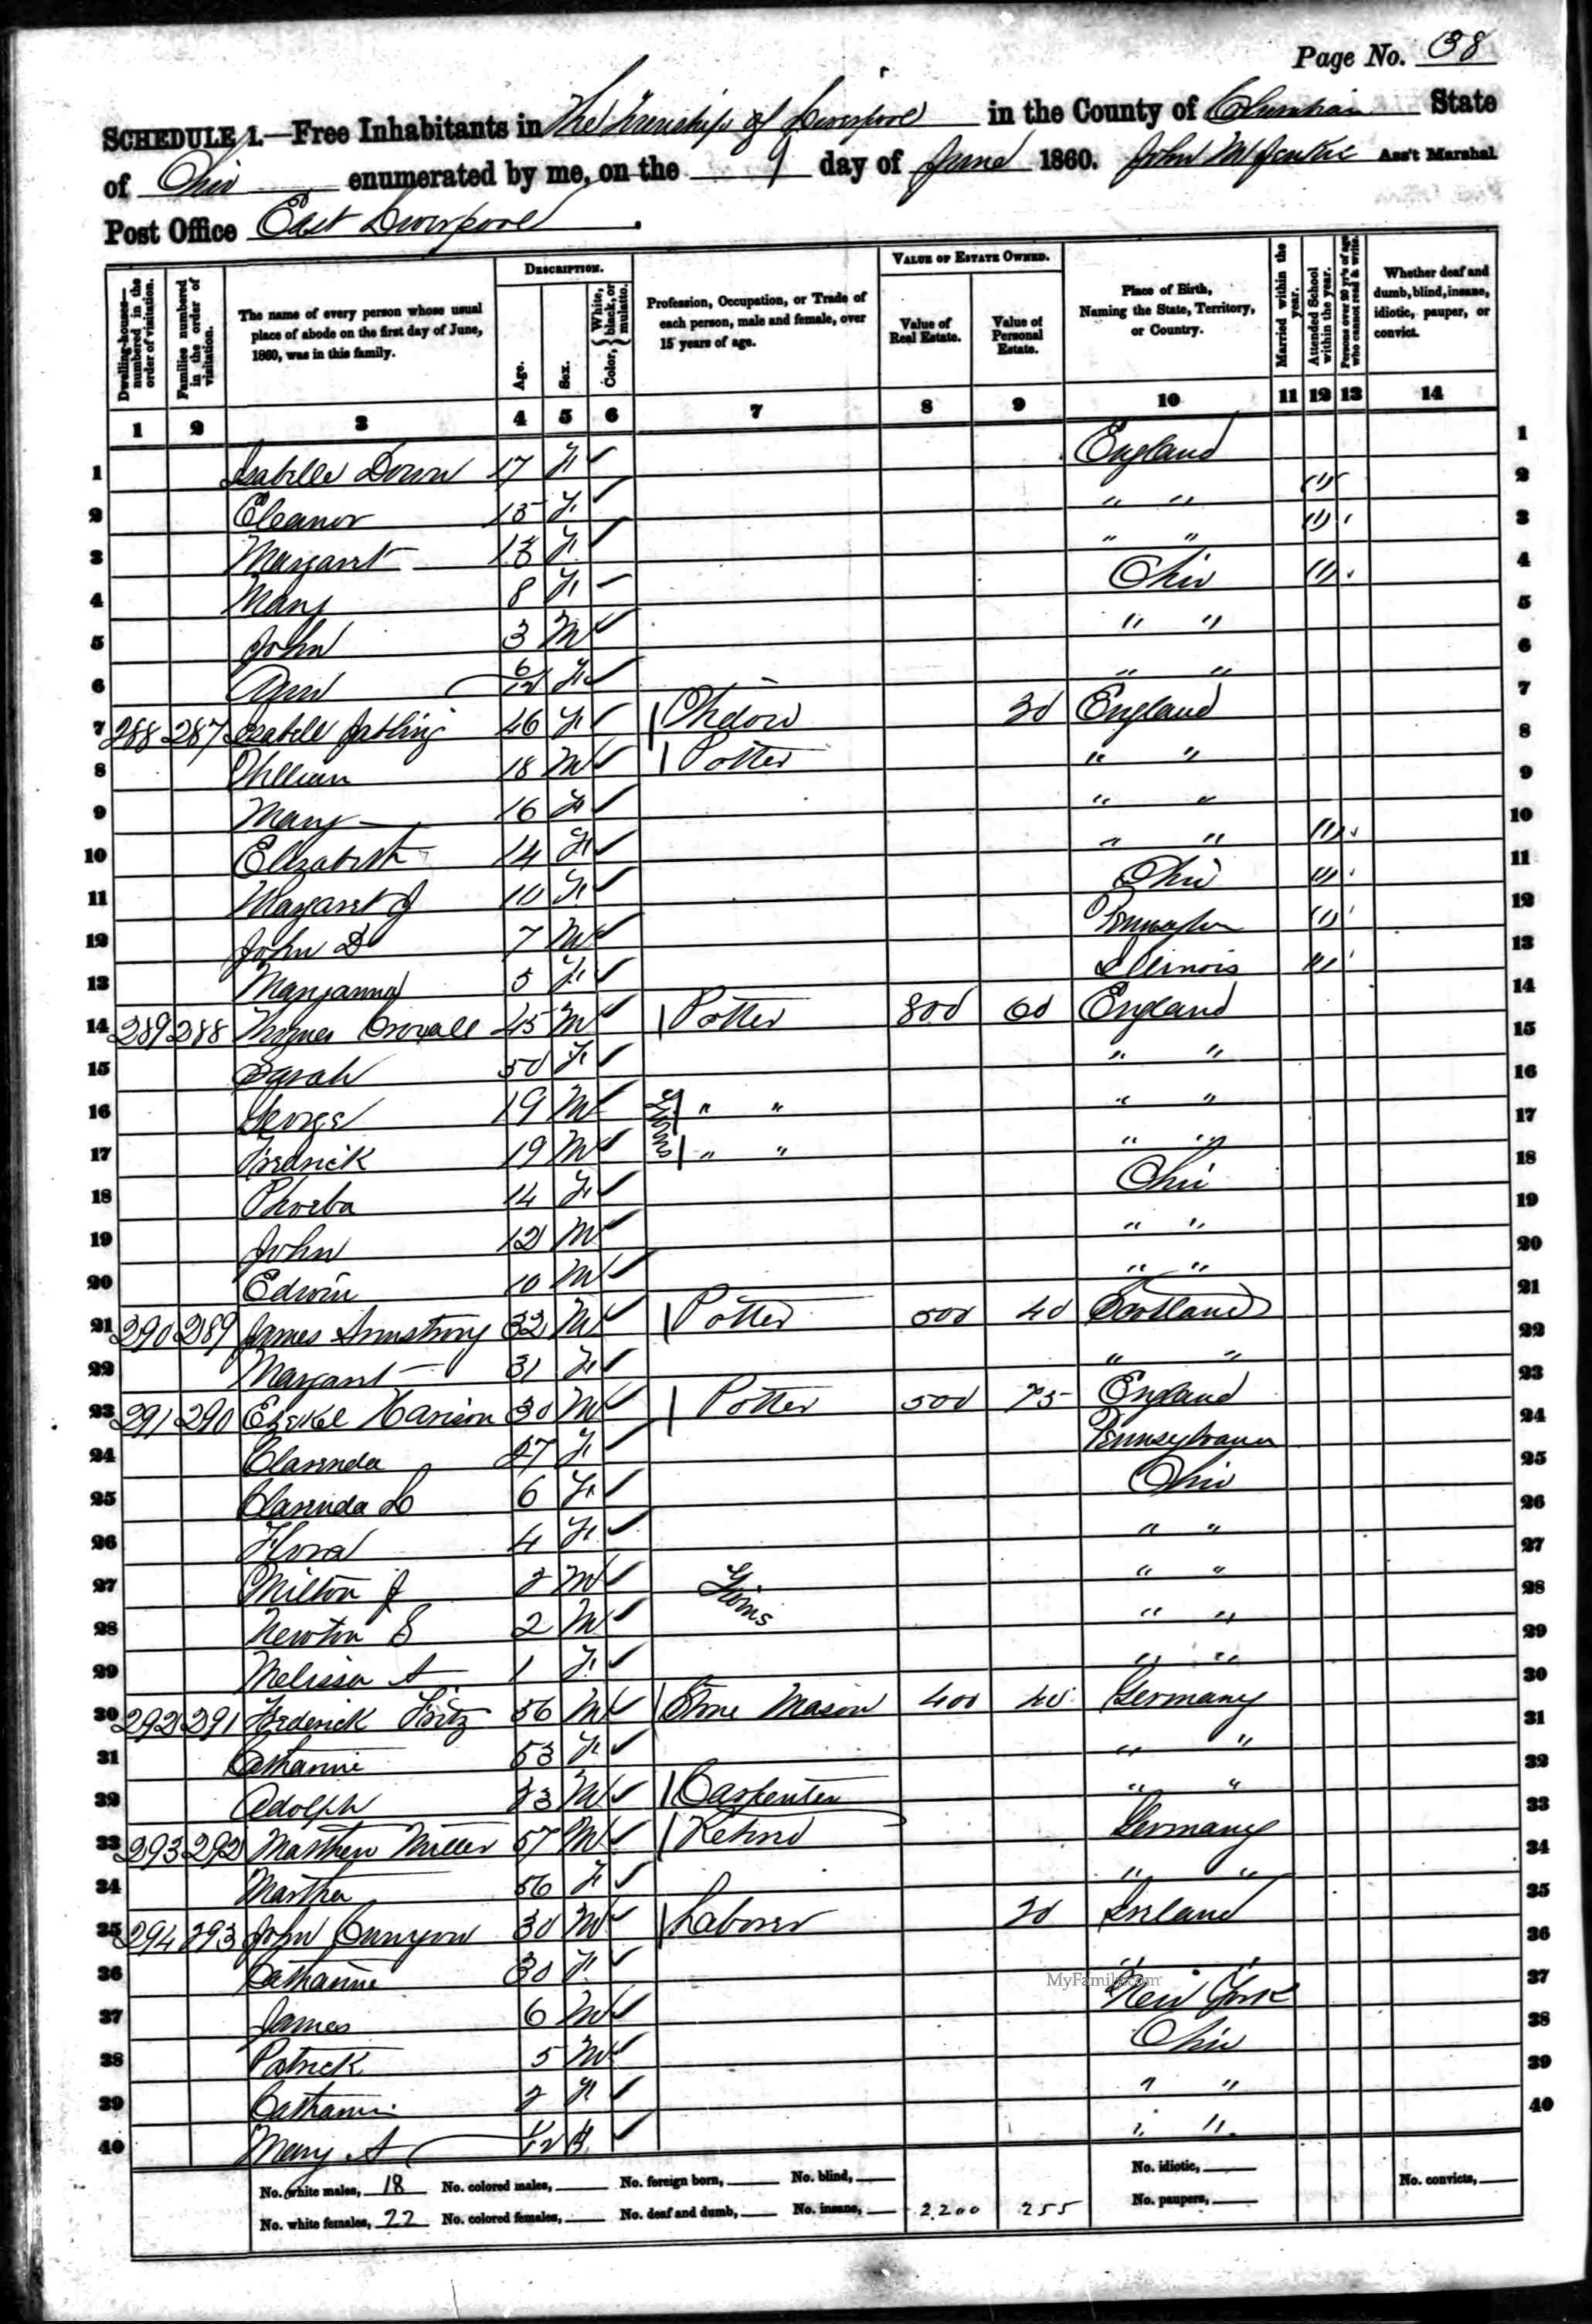 Page No. 38
SCHEDULE 1.—Free Inhabitants in The Township of Liverpool in the County of Columbiana State
of Ohio enumerated by me, on the 9 day of June 1860. John Ass't Marshal
Post Office East Liverpool.
Dwelling-houses—numbered in the order of visitation.
Families numbered in the order of visitation.
The name of every person whose usual place of abode on the first day of June, 1860, was in this family.
DESCRIPTION.
Age.
Sex.
Color, { White, black, or mulatto.
Profession, Occupation, or Trade of each person, male and female, over 15 years of age.
VALUE OF ESTATE OWNED.
Value of Real Estate.
Value of Personal Estate.
Place of Birth, Naming the State, Territory, or Country.
Married within the year.
Attended School within the year.
Persons over 20 y'rs of age who cannot read & write.
Whether deaf and dumb, blind, insane, idiotic, pauper, or convict.
1 2 3 4 5 6 7 8 9 10 11 12 13 14
1 Isabella 17 F England 1
2 Eleanor 15 F " " 1 2
3 Margaret 13 F " " 1 3
4 Mary 8 F Ohio 1 4
5 John 3 M " " 5
6 Ann 6/12 F " " 6
7 288 287 Isabell 46 F 30 England 7
8 William 18 M Potter " " 8
9 Mary 16 F " " 9
10 Elizabeth 14 F " " 1 10
11 Margaret J 10 F Ohio 1 11
12 John D 7 M 1 12
13 Maryanna 5 F Illinois 1 13
14 289 288 Thomas Croxall 45 M Potter 800 60 England 14
15 Sarah 50 F " " 15
16 George 19 M Twins " " " " 16
17 Fredrick 19 M " " " " 17
18 Phoeba 14 F Ohio 18
19 John 12 M " " 19
20 Edwin 10 M " " 20
21 290 289 James Armstrong 32 M Potter 500 40 Scotland 21
22 Margaret 31 F " " 22
23 291 290 Ezekel Harison 30 M Potter 500 75 England 23
24 Clarinda 27 F Pennsylvania 24
25 Clarinda L 6 F Ohio 25
26 Flora 4 F " " 26
27 Milton J 2 M Twins " " 27
28 Newton S 2 M " " 28
29 Melissa A 1 F " " 29
30 292 291 Frederick Fritz 56 M Stone Mason 400 40 Germany 30
31 Catharine 53 F " " 31
32 Adolph 23 M Carpenter " " 32
33 293 292 Matthew Miller 57 M Retired Germany 33
34 Martha 56 F " " 34
35 294 293 John 30 M Laborer Ireland 35
36 Catharine 30 F " " 36
37 James 6 M New York 37
38 Patrick 5 M Ohio 38
39 Catharine 2 F " " 39
40 Mary A 1/12 F " " 40
MyFamily.com
No. white males, 18 No. colored males, No. foreign born, No. blind, No. idiotic, No. convicts,
No. white females, 22 No. colored females, No. deaf and dumb, No. insane, 2200 255 No. paupers,